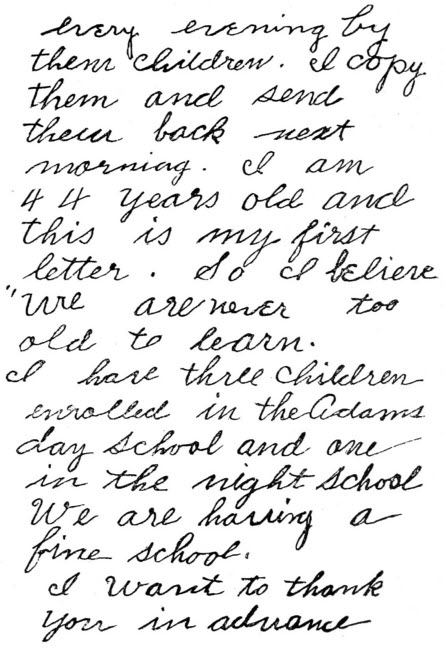 every evening by
them children. I copy
them and send
them back next
morning. I am
44 years old and
this is my first
letter. So I believe
"We are never too
old to learn.
I have three children
enrolled in the Adams
day school and one
in the night school
We are having a
fine school.
I want to thank
you in advance